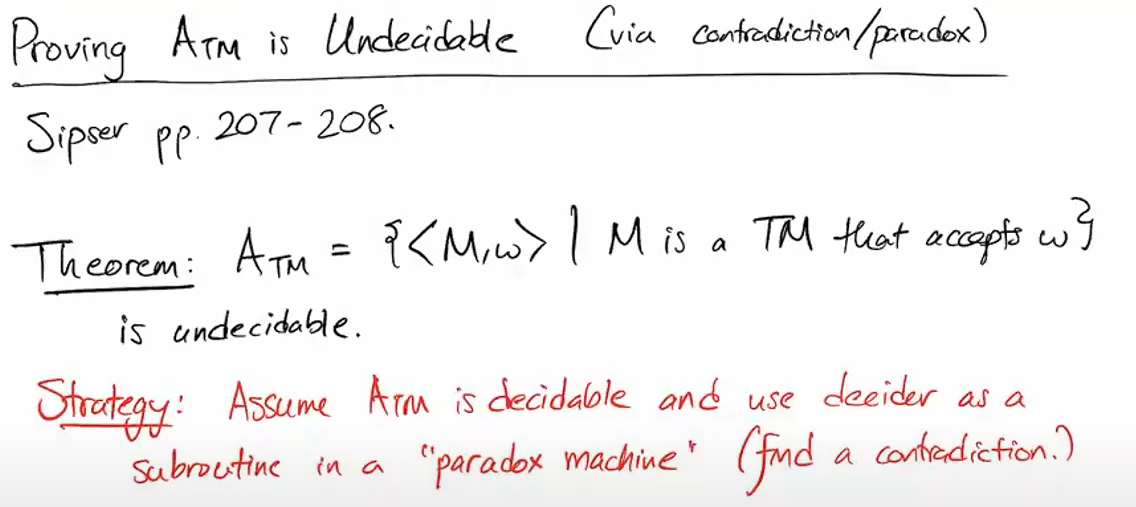 Proving ATM is Undecidable (via contradiction/paradox)
Sipser pp. 207-208.
Theorem: ATM = {<M,w> | M is a TM that accepts w}
is undecidable.
Strategy: Assume ATM is decidable and use decider as a
subroutine in a "paradox machine" (find a contradiction.)